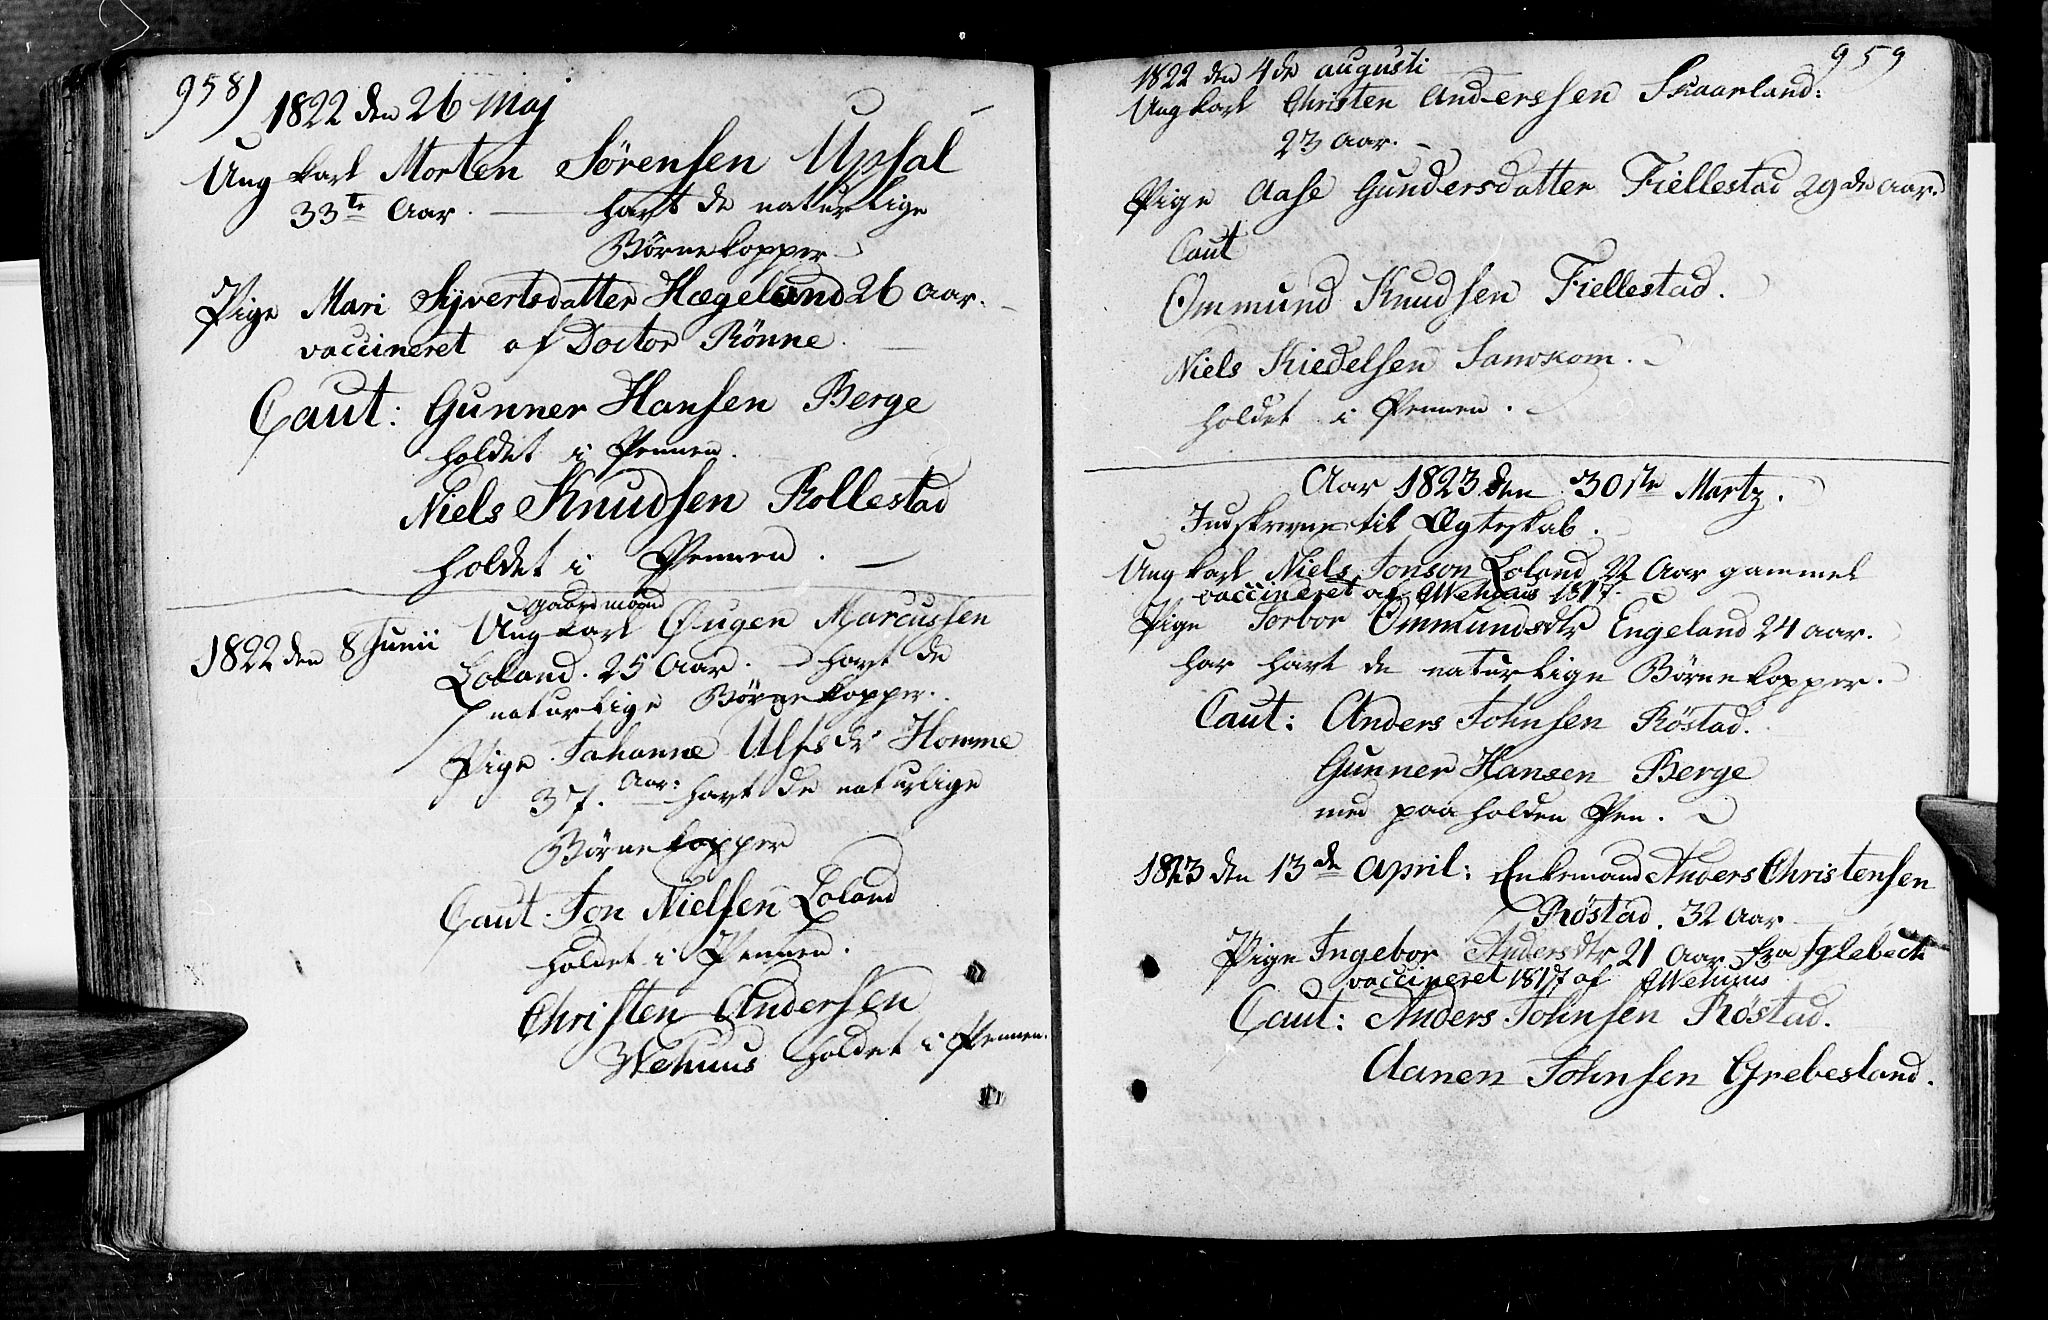 958)
1822 den 26 Maj
Ungkarl Morten Sørensen Upsal
33te Aar. — havt de naturlige
Børnekopper.
Pige Mari Syvertsdatter Hægeland 26 Aar. —
vaccineret af Doctor Rönne. —
Caut: Gunner Hansen Berge
holdet i Pennen.
Niels Knudsen Rollestad
holdet i Pennen. —
Gaardmand
1822 den 8 Junii Ungkarl Øugen Marcussen
Loland. 25 Aar. havt de
naturlige Børnekopper.
Pige Johanne Ulfsdr Homme
37. Aar: havt de naturlige
Børnekopper
Caut. Jon Nielsen Loland
holdet i Pennen.
Christen Andersen
Wehuus holdet i Pennen.
959
1822 den 4de augusti
Ungkarl Christen Anderssen Skaarland:
23 Aar. —
Pige Aase Gundersdatter Fiellestad 29de Aar.
Caut
Ommund Knudsen Fiellestad.
Niels Kiedelsen
holdet i Pennen.
Aar 1823 den 30te Martz.
Indskrevne til Ægteskab.
Ungkarl Niels Jonson Loland 22 Aar gammel
vaccineret af Wehuus 1817.
Pige Torbor Ommundsdtr Engeland 24 aar.
har havt de naturlige Børnekopper.
Caut: Anders Johnsen Røstad.
Gunner Hansen Berge
med paaholden Pen.
1823 den 13de April: Enkemand Anders Christensen
Røstad. 32 Aar
Pige Ingebor Andersdtr 21 Aar fra Iglebeck
vaccineret 1817 af Wehuus
Caut: Anders Johnsen Røstad.
Aanen Johnsen Grebesland.